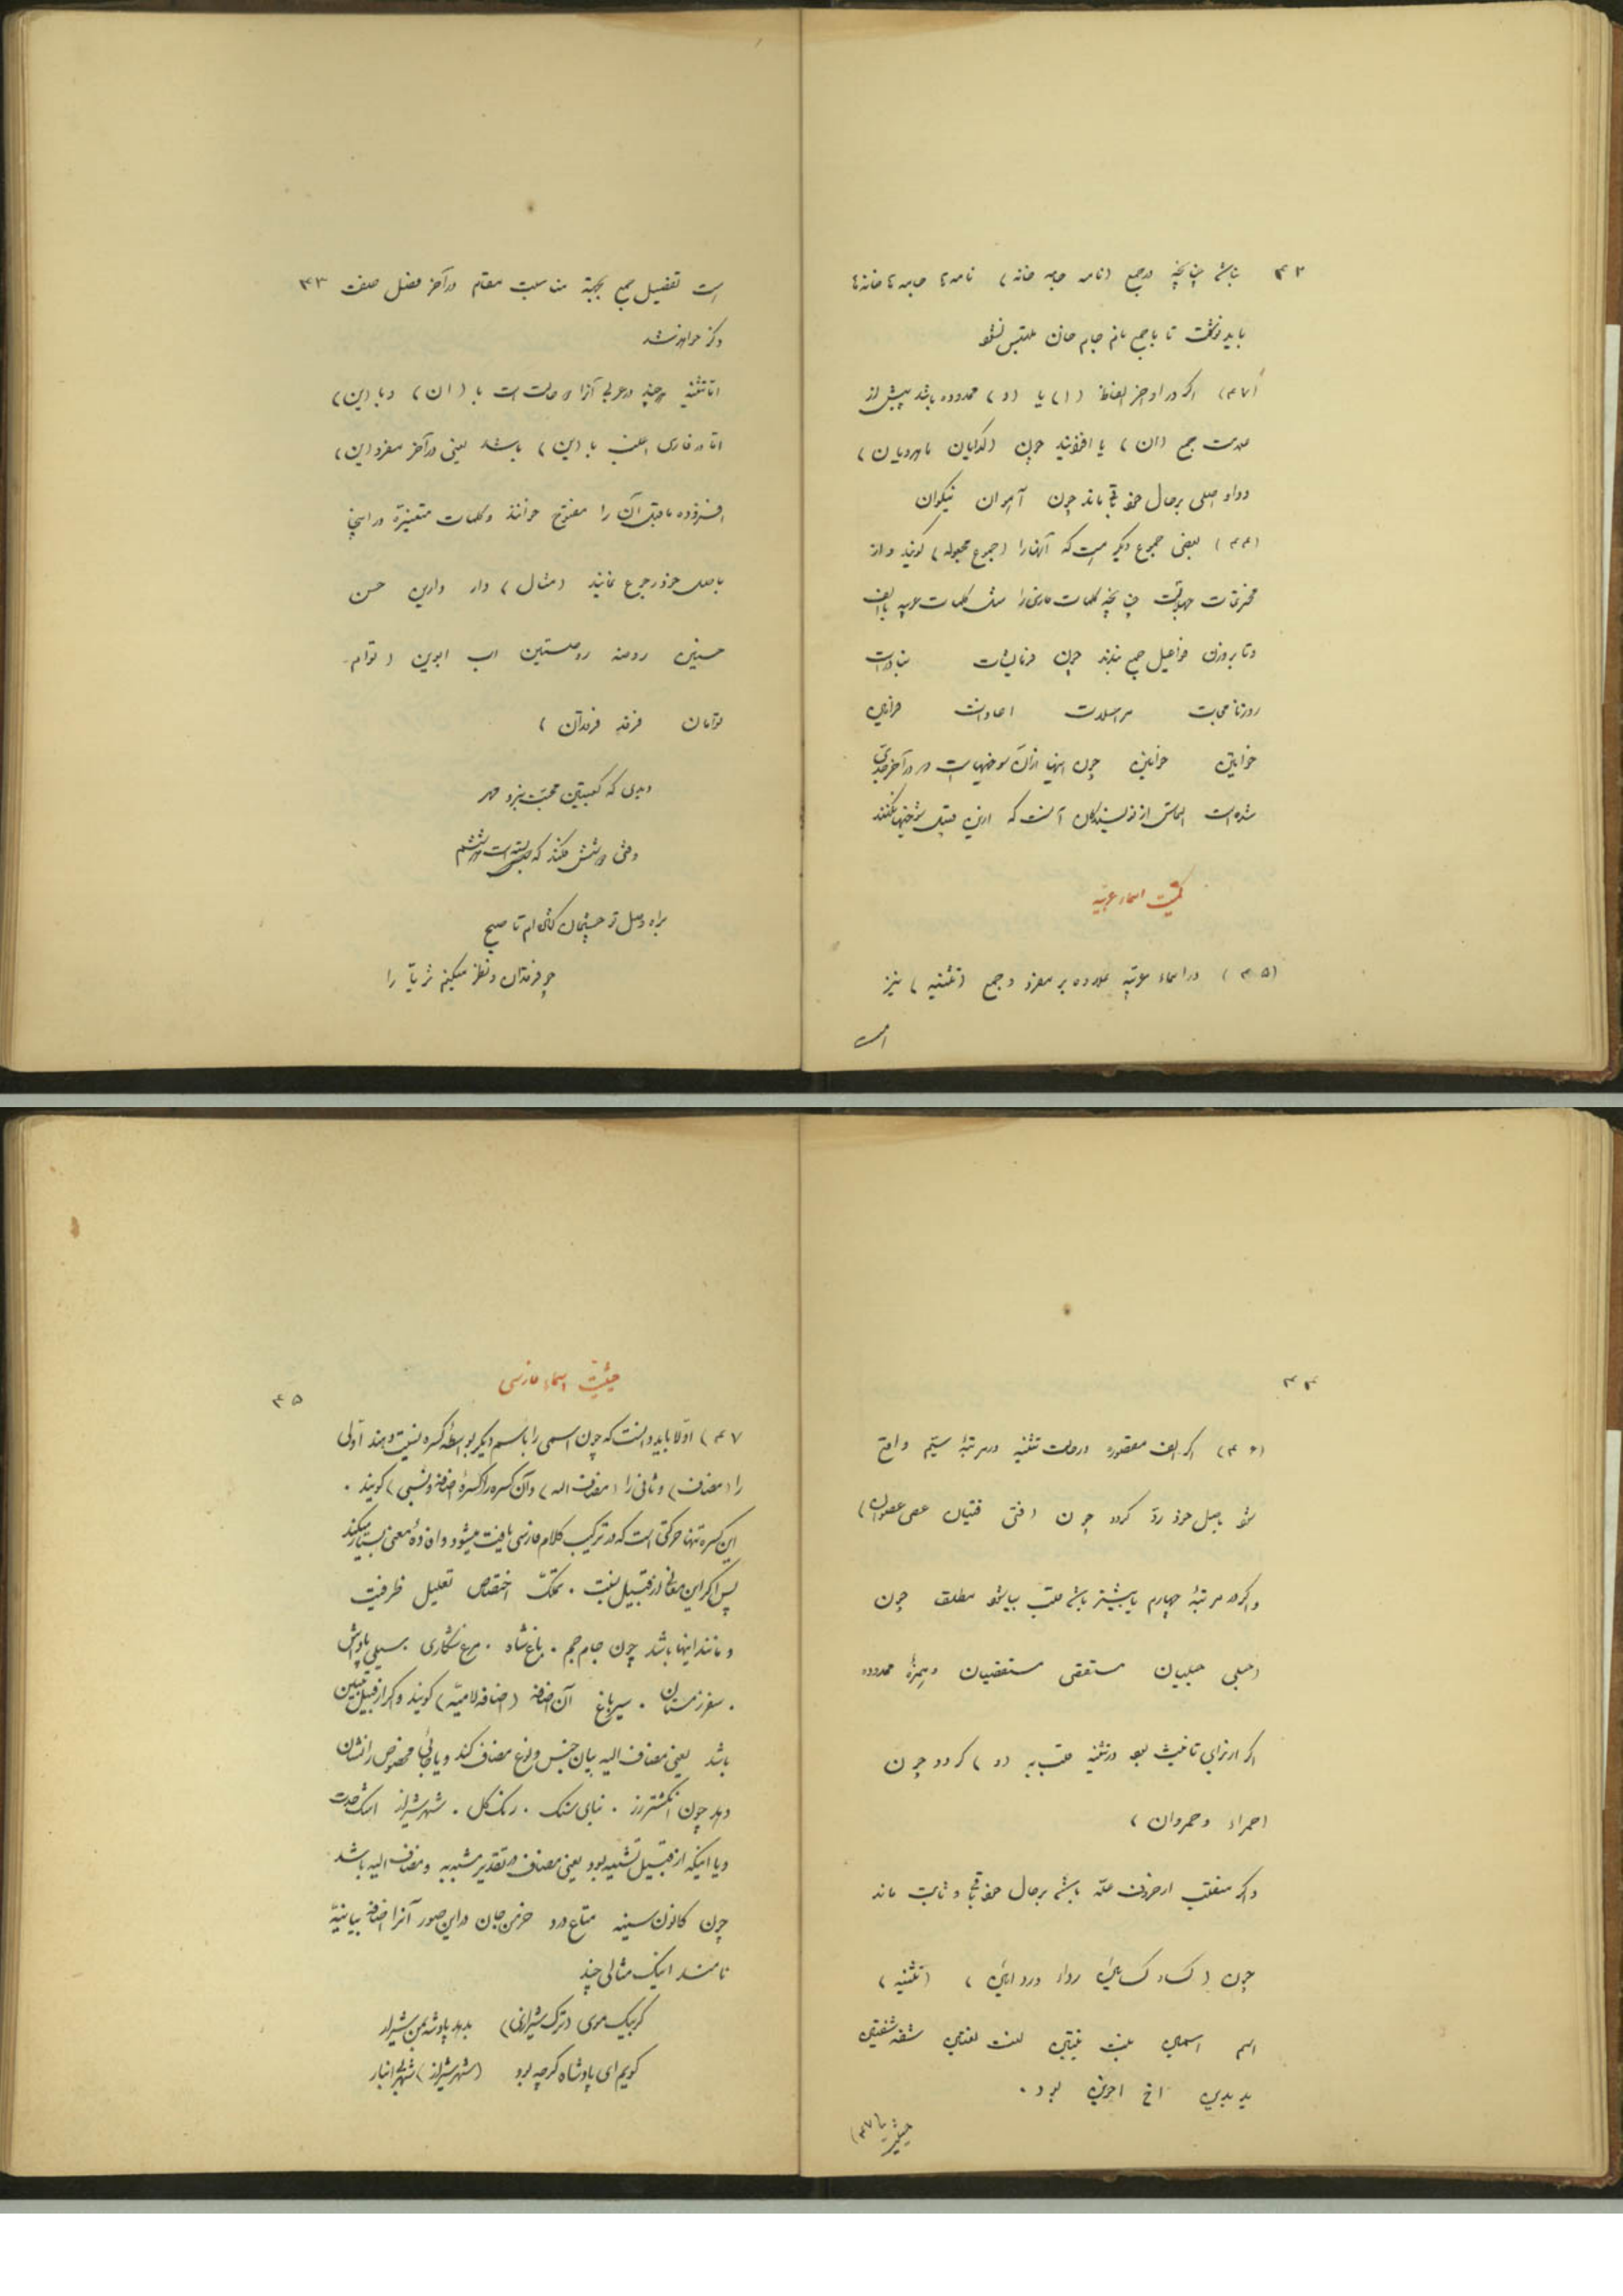 ۴۲
باشد چنانچه در جمع (نامه جامه خانه) نامه‌ها جامه‌ها خانه‌ها
باید نوشت تا با جمع نام جام خان ملتبس نشود
اگر در اواخر الفاظ (ا) یا (و) ممدوده باشد پیش از
علامت جمع (ان) یا افزایند چون (گدایان ماهرویان)
و واو اصلی بر حال خود باقی ماند چون آهوان نیکوان
(۴۴) بعضی جموع دیگر هست که آنها را (جموع مجهوله) گویند و از
مخترعات چنانچه کلمات فارسی را مثل کلمات عربیه با الف
و تا بر وزن فواعیل جمع بندند چون فرمایشات
روزنامجات مراسلات فرامین
خوانین خواتین چون اینها در آخر
شده است التماس از نویسندگان آنست که ازین قبیل نکنند
کمیت اسماء عربیه
(۴۵) در اسماء عربیه علاوه بر مفرد و جمع (تثنیه) نیز
است
۴۳
است تفصیل جمع بجهة مناسبت مقام در آخر فصل صفت
ذکر خواهد شد
اما تثنیه هر چند در عربی آنرا دو حالت است با (ان) و با (ین)
اما در فارسی اغلب با (ین) باشد یعنی در آخر مفرد (ین)
افزوده ماقبل آن را مفتوح خوانند و کلمات متغیره در اینجا
باصل خود رجوع نمایند (مثال) دار دارین حسن
حسنین روضه روضتین اب ابوین (توام
توامان فرقد فرقدان)
دیدی که کعبتین محبت نبرد مهر
وحشی ششدر
براه وصل تو چشمان گشاده‌ام تا صبح
چو فرقدان و نظر میکنم ثریا را
۴۴
(۴۶) اگر الف مقصوره در حالت تثنیه در مرتبهٔ سیّم واقع
شود باصل خود ردّ گردد چون (فتی فتیان عصی عصوان)
و اگر در مرتبهٔ چهارم یا بیشتر باشد قلب بیا شود مطلقا چون
(حبلی حبلیان مستقصی مستقصیان و همزهٔ ممدوده
اگر از برای تأنیث بود در تثنیه قلب به (و) گردد چون
(حمراء و حمروان)
و اگر منقلب از حروف علّه باشد بر حال خود باقی و ثابت ماند
چون (کساء کسائین رداء وردائین) (تثنیه)
اسم اسمین بنت بنتین لغت لغتین شفه شفتین
ید یدین اخ اخوین بود.
حیثیت (۴۷)
۴۵
حیثیت اسماء فارسی
۴۷) اولا باید دانست که چون اسمی را باسم دیگر بواسطهٔ کسره نسبت دهند اولی
را (مضاف) و ثانی را (مضاف الیه) و آن کسره را (کسرهٔ اضافه و نسبی) گویند.
این کسره تنها حرکتی است که در ترکیب کلام فارسی یافت میشود و افادهٔ معنی بسیار میکند
پس اگر این معانی از قبیل نسبت. تملک اختصاص تعلیل ظرفیت
و مانند اینها باشد چون جام جم. باغ شاه. مرغ شکاری سیلی پاداش
. سفر زمستان. سیر باغ آن اضافه (اضافه لامیّه) گویند و اگر از قبیل تبیین
باشد یعنی مضاف الیه بیان جنس و نوع مضاف کند و یا جائی مخصوص را نشان
دهد چون انگشتر زر. بنای سنگ. رنگ گل. شهر شیراز
و یا اینکه از قبیل تشبیه بود یعنی مضاف در تقدیر مشبه به و مضاف الیه باشد
چون کانون سینه متاع درد خرمن جان در این صور آنرا اضافهٔ بیانیّه
نامند اینک مثالی چند
گر بیک موی (ترک شیرازی) بدهد پادشه بمن شیراز
گویم ای پادشاه گرچه بود (شهر شیراز) شهر بی انباز